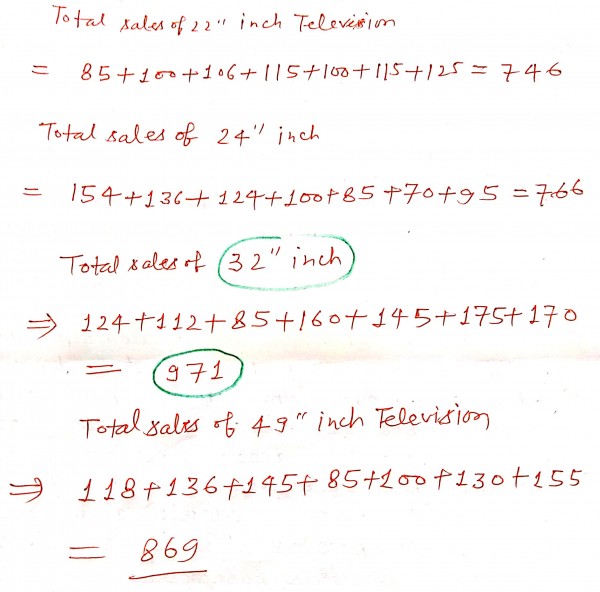 Total sales of 22" inch Television
= 85+100+106+115+100+115+125 = 746
Total sales of 24" inch
= 154+136+124+100+85+70+95 = 766
Total sales of 32" inch
⇒ 124+112+85+160+145+175+170
= 971
Total sales of 49" inch Television
⇒ 118+136+145+85+100+130+155
= 869